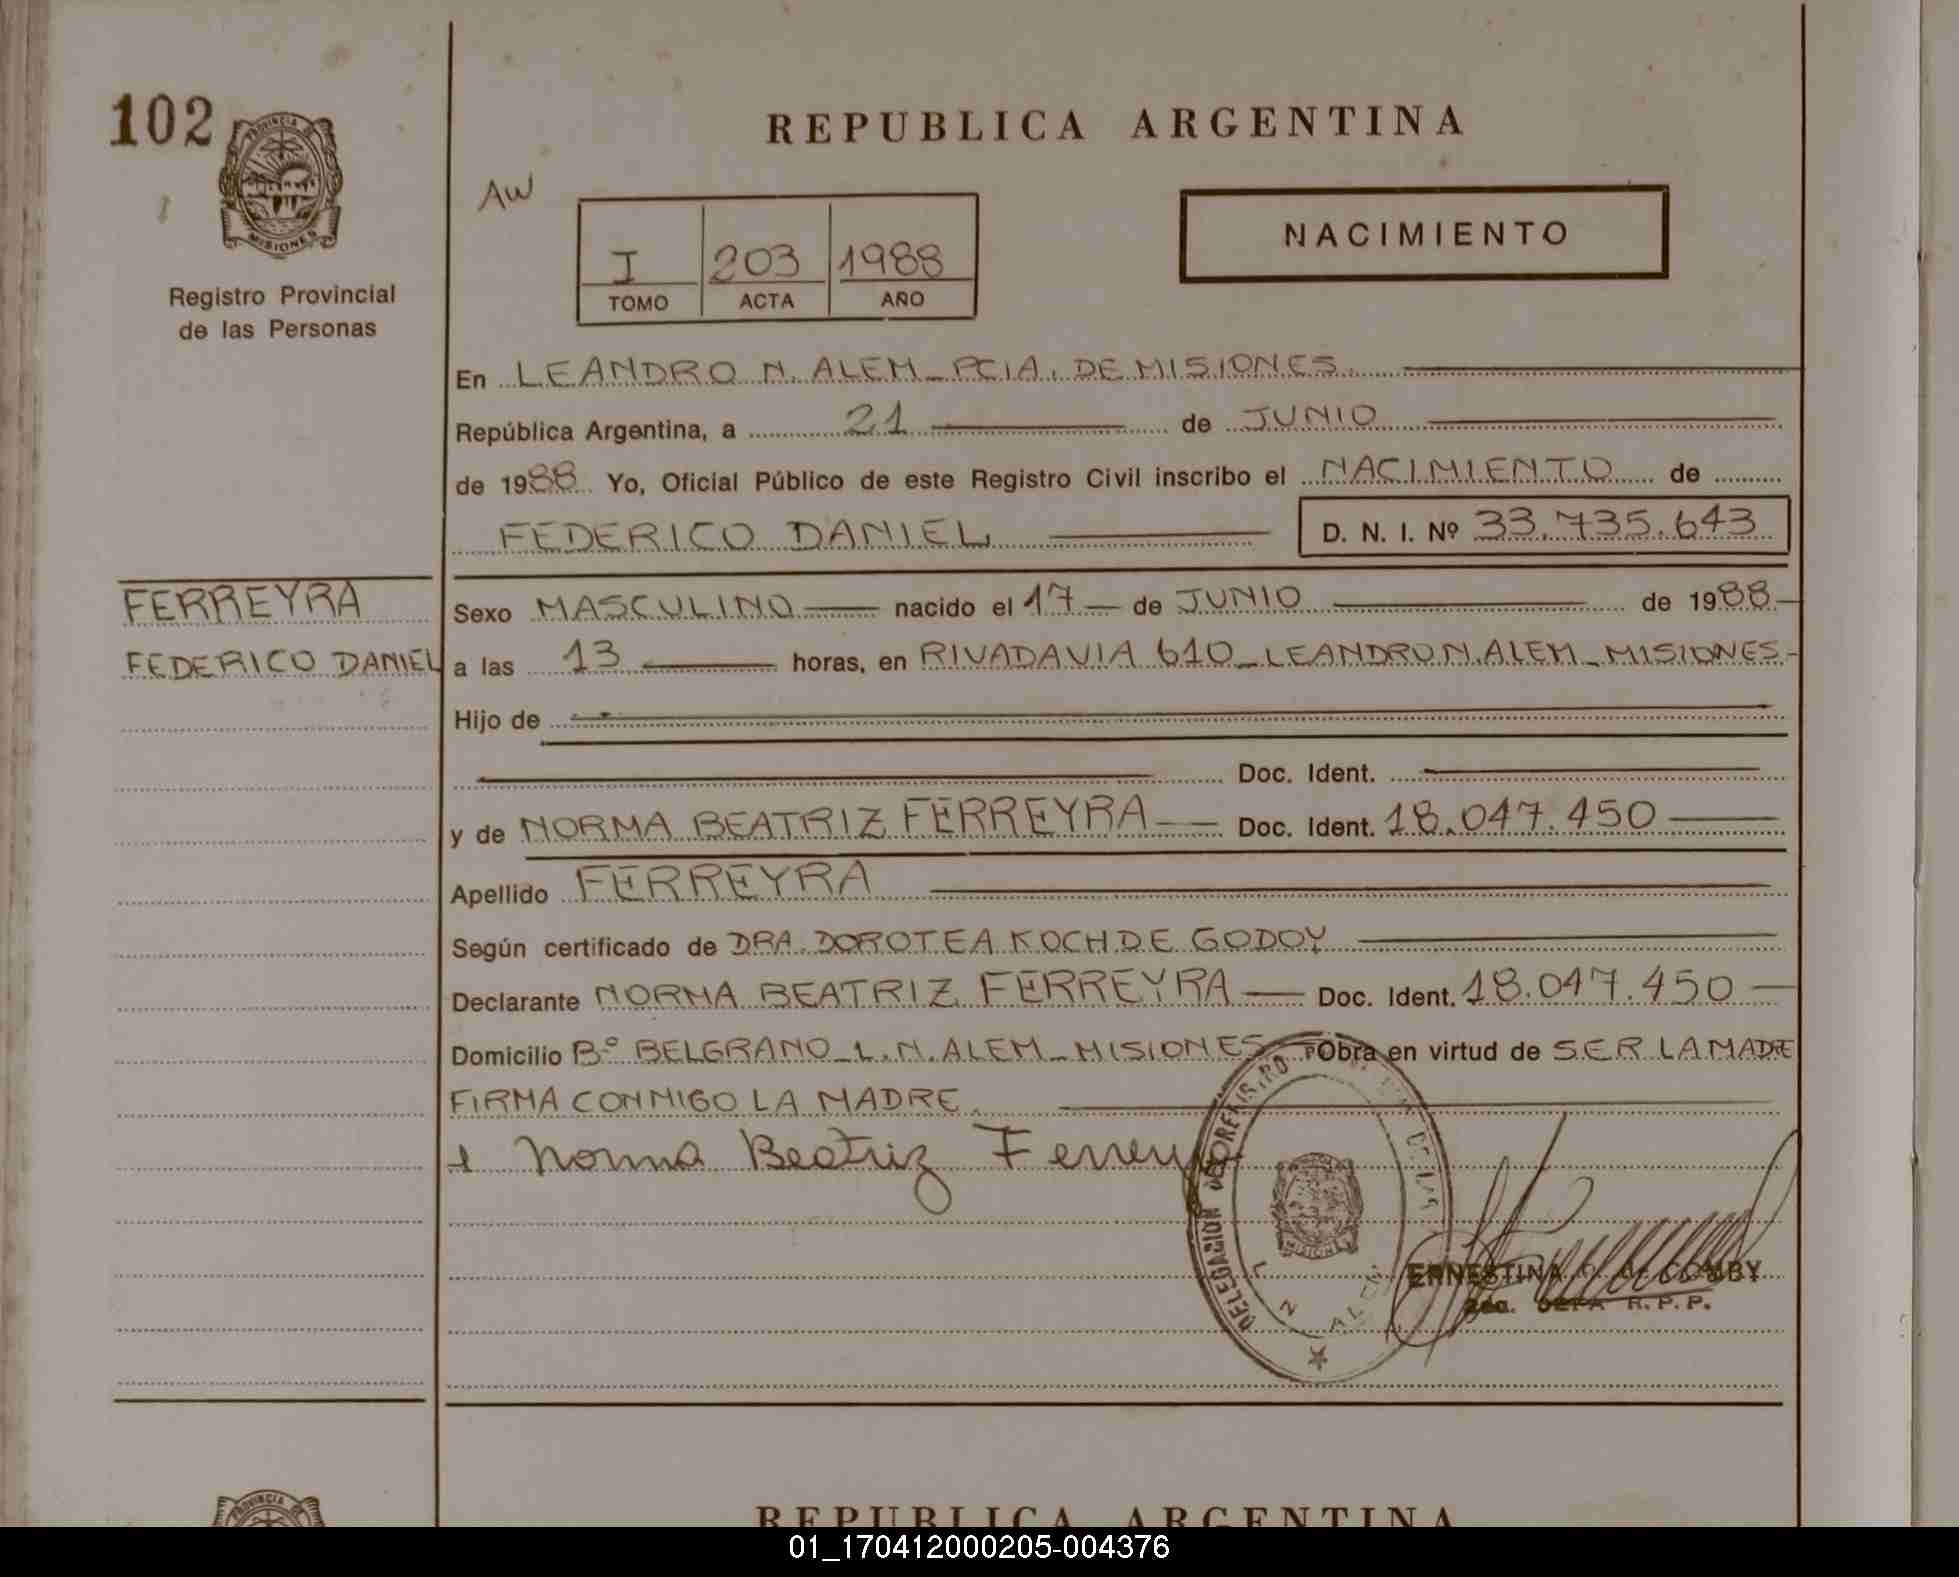 102
PROVINCIA DE
MISIONES
Registro Provincial
de las Personas
REPUBLICA ARGENTINA
AW
I 203 1988
TOMO ACTA AÑO
NACIMIENTO
En LEANDRO N. ALEM - PCIA. DE MISIONES.
República Argentina, a 21 de JUNIO
de 1988 Yo, Oficial Público de este Registro Civil inscribo el NACIMIENTO de
FEDERICO DANIEL D. N. I. Nº 33.735.643
FERREYRA
FEDERICO DANIEL
Sexo MASCULINO nacido el 17 de JUNIO de 1988
a las 13 horas, en RIVADAVIA 610 - LEANDRO N. ALEM - MISIONES -
Hijo de
Doc. Ident.
y de NORMA BEATRIZ FERREYRA Doc. Ident. 18.047.450
Apellido FERREYRA
Según certificado de DRA. DOROTEA KOCH DE GODOY
Declarante NORMA BEATRIZ FERREYRA Doc. Ident. 18.047.450
Domicilio Bº BELGRANO - L. N. ALEM - MISIONES Obra en virtud de SER LA MADRE
FIRMA CONMIGO LA MADRE.
Norma Beatriz Ferreyra
DELEGACION
MISIONES
L N ALEM
ERNESTINA DE COMBY
R. P. P.
PROVINCIA
REPUBLICA ARGENTINA
01_170412000205-004376